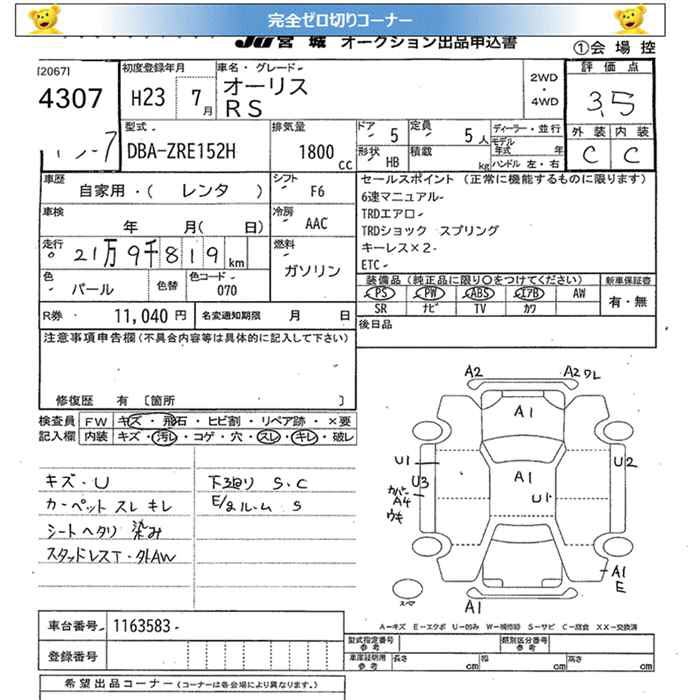 完全ゼロ切りコーナー
JU 宮 城 オークション出品申込書
①会 場 控
[2067]
4307
初度登録年月
H23 7月
車名・グレード
オーリス
RS
2WD
・
4WD
評 価 点
3.5
外 装 内 装
C C
型式
DBA-ZRE152H
排気量
1800 cc
ドア 5
定員 5人
ディーラー・並行
形状 HB
積載 kg
モデル年式 年
ハンドル 左・右
車歴
自家用・( レンタ )
シフト F6
車検
年 月( 日)
冷房 AAC
走行
21万9千819km
燃料
ガソリン
色
パール
色替
色コード
070
R券 11,040 円
名変通知期限 月 日
セールスポイント (正常に機能するものに限ります)
6速マニュアル
TRDエアロ
TRDショック スプリング
キーレス×2
ETC
装備品(純正品に限り○をつけてください)
新車保証書
PS PW ABS エアB AW
有・無
SR ナビ TV カワ
後日品
注意事項申告欄(不具合内容等は具体的に記入して下さい)
修復歴 有 〔箇所 〕
検査員記入欄
FW キズ・飛石・ヒビ割・リペア跡・×要
内装 キズ・汚レ・コゲ・穴・スレ・キレ・破レ
キズ・U
カーペット スレ キレ
シートヘタリ 染み
スタッドレスT・外AW
下廻り S.C
E/gルーム S
A2
A2ワレ
A1
U1
U2
U3
A1
U1
カバー
A4
ウキ
A1
E
スペア
A1
A-キズ E-エクボ U-凹み W-補修跡 S-サビ C-腐食 XX-交換済
車台番号 1163583
登録番号
型式指定番号 参考
類別区分番号 参考
車庫証明用 参考
長さ cm
幅 cm
高さ cm
希望出品コーナー (コーナーは各会場により異なります。)